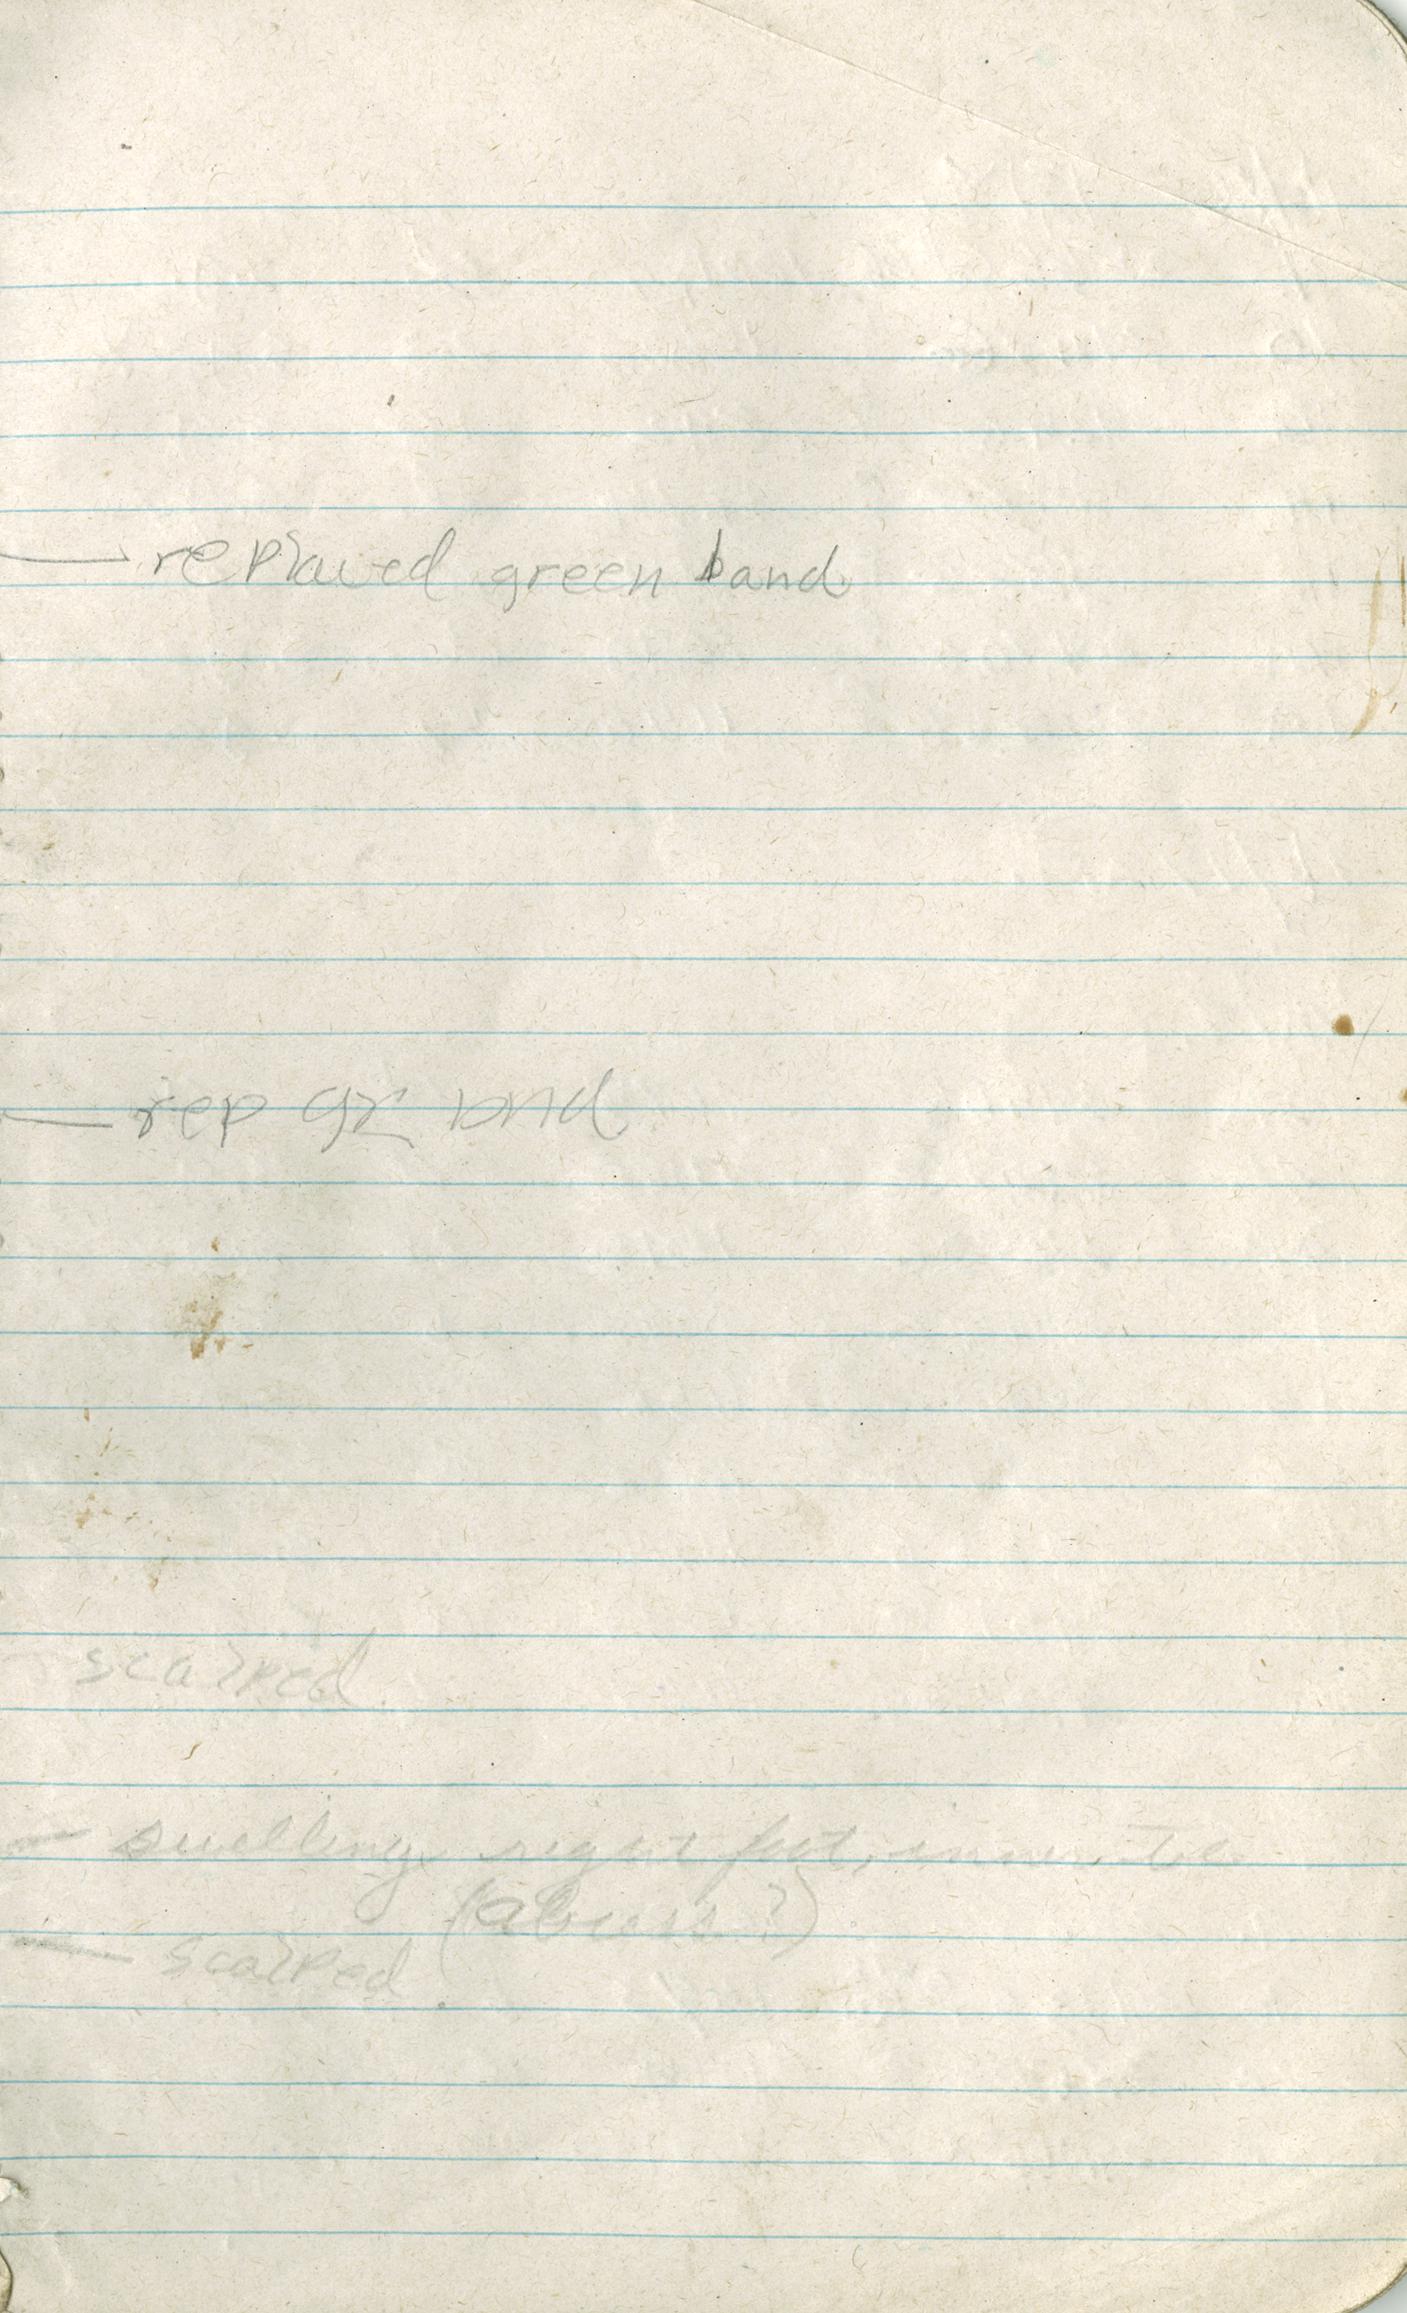 — replaced green band
— rep gr bnd
scalped
— swelling right foot, inner toe
(abcess?)
— scalped